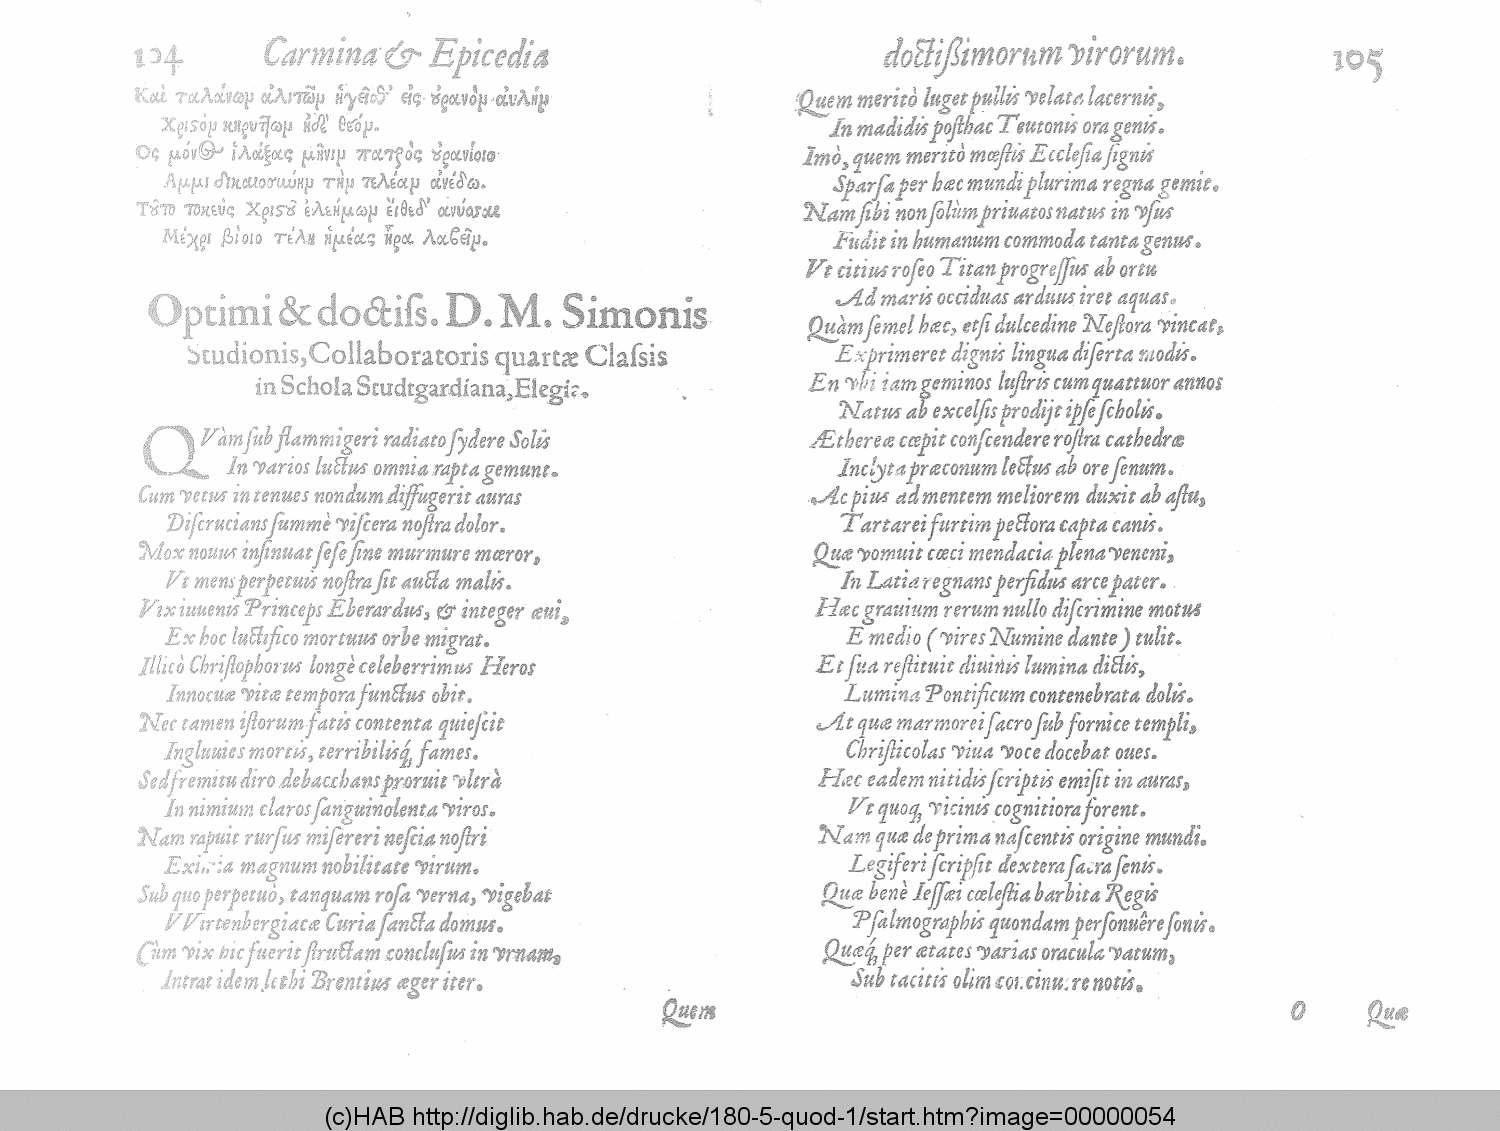 104 Carmina & Epicedia
Καὶ ταλάνωμ ἀλιτῶμ ἡγεῖσθ' εἰς ουρανὸμ αυλὴμ
Χριστόμ κηρυτ]ωμ ἠδὲ θεόμ.
Ος μόνος ἱλάξας μῆνιμ πατρὸς ουρανίοιο
Αμμι δικαιοσύνημ τὴμ τελέαμ ἀνέδω.
Τοῦτο τοκεὺς Χριστοῦ ἐλεήμωμ εἴθεδ' ανύσαι
Μέχρι βίοιο τέλη ἡμέας ἦρα λαβεῖμ.
Optimi & doctiſs. D. M. Simonis
Studionis, Collaboratoris quartæ Claſsis
in Schola Studtgardiana, Elegia.
QVàm ſub flammigeri radiato ſydere Solis
In varios luctus omnia rapta gemunt.
Cum vetus in tenues nondum diffugerit auras
Diſcrucians ſummè viſcera noſtra dolor.
Mox nouus inſinuat ſeſe ſine murmure mœror,
Vt mens perpetuis noſtra ſit aucta malis.
Vix iuuenis Princeps Eberardus, & integer æui,
Ex hoc luctifico mortuus orbe migrat.
Illicò Chriſtophorus longè celeberrimus Heros
Innocuæ vitæ tempora functus obit.
Nec tamen iſtorum fatis contenta quieſcit
Ingluuies mortis, terribilisq́; fames.
Sed fremitu diro debacchans proruit vltrà
In nimium claros ſanguinolenta viros.
Nam rapuit rurſus miſereri neſcia noſtri
Eximia magnum nobilitate virum.
Sub quo perpetuò, tanquam roſa verna, vigebat
VVirtenbergiacæ Curia ſancta domus.
Cùm vix hic fuerit ſtructam concluſus in vrnam,
Intrat idem lethi Brentius æger iter.
Quem
doctißimorum virorum. 105
Quem meritò luget pullis velata lacernis,
In madidis poſthac Teutonis ora genis.
Imò, quem meritò mœſtis Eccleſia ſignis
Sparſa per hæc mundi plurima regna gemit.
Nam ſibi non ſolùm priuatos natus in vſus
Fudit in humanum commoda tanta genus.
Vt citius roſeo Titan progreſſus ab ortu
Ad maris occiduas arduus iret aquas.
Quàm ſemel hæc, etſi dulcedine Neſtora vincat,
Exprimeret dignis lingua diſerta modis.
En vbi iam geminos luſtris cum quattuor annos
Natus ab excelſis prodijt ipſe ſcholis.
Æthereæ cœpit conſcendere roſtra cathedræ
Inclyta præconum lectus ab ore ſenum.
Ac pius ad mentem meliorem duxit ab aſtu,
Tartarei furtim pectora capta canis.
Quæ vomuit cœci mendacia plena veneni,
In Latia regnans perfidus arce pater.
Hæc grauium rerum nullo diſcrimine motus
E medio (vires Numine dante) tulit.
Et ſua reſtituit diuinis lumina dictis,
Lumina Pontificum contenebrata dolis.
At quæ marmorei ſacro ſub fornice templi,
Chriſticolas viua voce docebat oues.
Hæc eadem nitidis ſcriptis emiſit in auras,
Vt quoq; vicinis cognitiora forent.
Nam quæ de prima naſcentis origine mundi.
Legiferi ſcripſit dextera ſacra ſenis.
Quæ benè Ieſſæi cœleſtia barbita Regis
Pſalmographis quondam perſonuêre ſonis.
Quæq́; per ætates varias oracula vatum,
Sub tacitis olim concinuêre notis.
O Quæ
(c)HAB http://diglib.hab.de/drucke/180-5-quod-1/start.htm?image=00000054